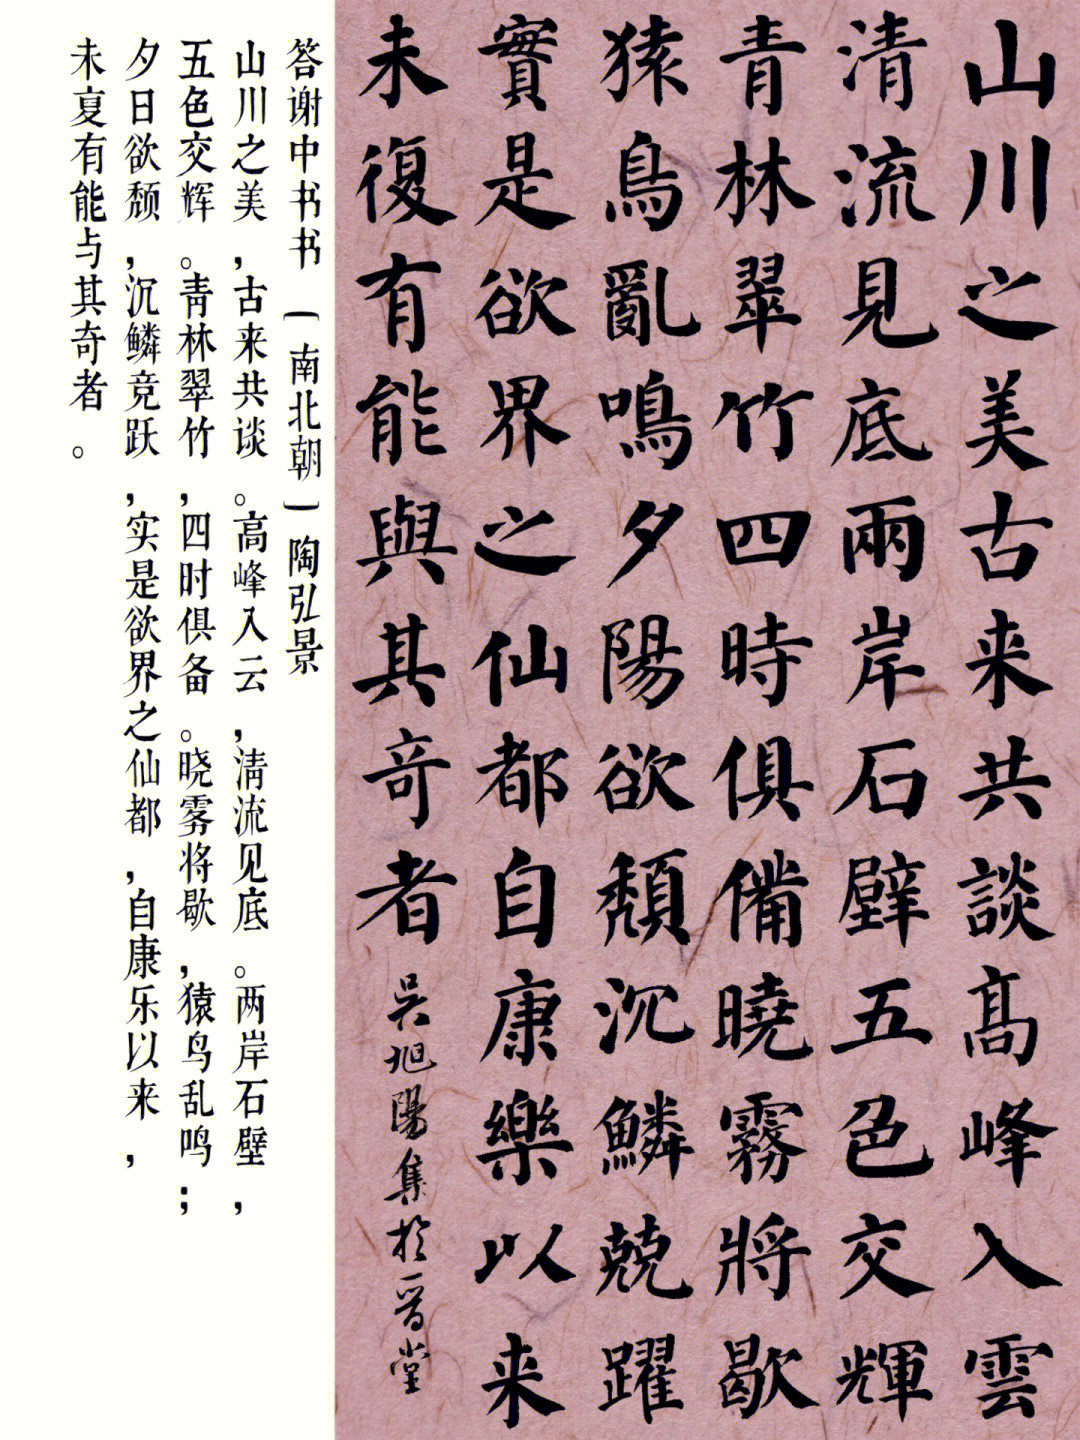 山川之美古来共談高峰入雲
清流見底兩岸石壁五色交輝
青林翠竹四時俱備曉霧將歇
猿鳥亂鳴夕陽欲頽沉鱗競躍
實是欲界之仙都自康樂以来
未復有能與其奇者
吴旭陽集於晉堂
答谢中书书（南北朝）陶弘景
山川之美，古来共谈。高峰入云，清流见底。两岸石壁，
五色交辉。青林翠竹，四时俱备。晓雾将歇，猿鸟乱鸣；
夕日欲颓，沉鳞竞跃，实是欲界之仙都，自康乐以来，
未复有能与其奇者。